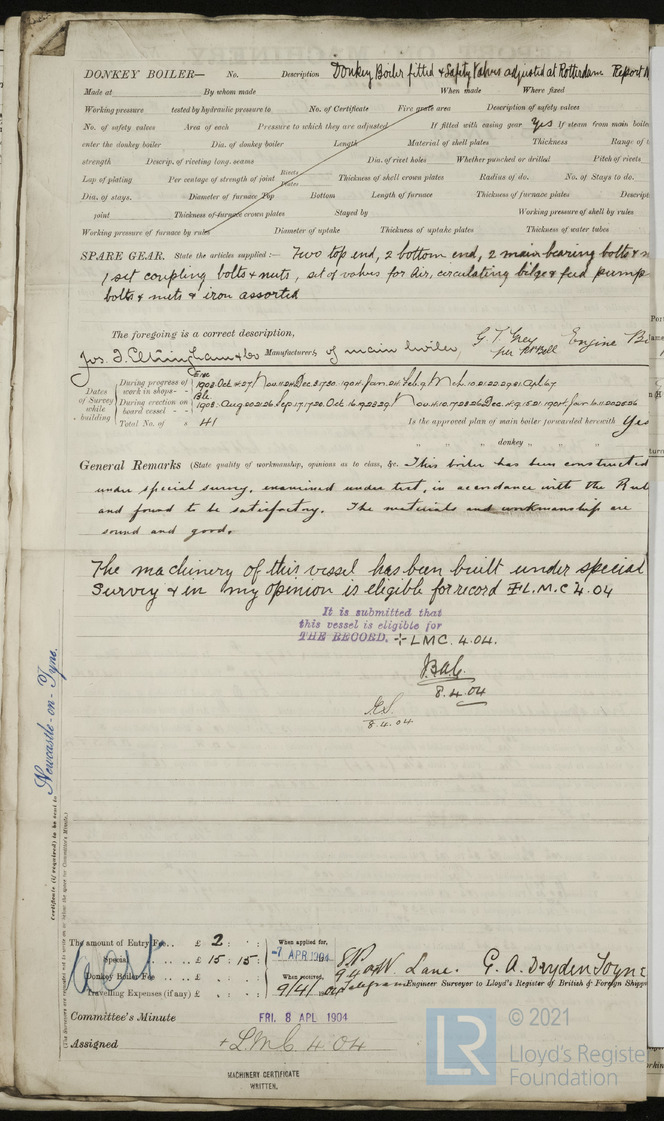 DONKEY BOILER— No. Description Donkey Boiler fitted & Safety Valves adjusted at Rotterdam Report
Made at By whom made When made Where fixed
Working pressure tested by hydraulic pressure to No. of Certificate Fire grate area Description of safety valves
No. of safety valves Area of each Pressure to which they are adjusted If fitted with easing gear Yes If steam from main boilers
enter the donkey boiler Dia. of donkey boiler Length Material of shell plates Thickness Range of
strength Descrip. of riveting long. seams Dia. of rivet holes Whether punched or drilled Pitch of rivets
Lap of plating Per centage of strength of joint Rivets Plates Thickness of shell crown plates Radius of do. No. of Stays to do.
Dia. of stays. Diameter of furnace Top Bottom Length of furnace Thickness of furnace plates Descript
joint Thickness of furnace crown plates Stayed by Working pressure of shell by rules
Working pressure of furnace by rules Diameter of uptake Thickness of uptake plates Thickness of water tubes
SPARE GEAR. State the articles supplied:— Two top end, 2 bottom end, 2 main bearing bolts &
1 set coupling bolts & nuts, set of valves for air, circulating bilge & feed pump
bolts & nuts & iron assorted
The foregoing is a correct description,
Jos. T. Eltringham & Co Manufacturers of main boiler, G T Grey Engine
Dates of Survey while building
During progress of work in shops - -
During erection on board vessel - -
Total No. of 41
Is the approved plan of main boiler forwarded herewith Yes
" " " donkey " "
General Remarks (State quality of workmanship, opinions as to class, &c. This boiler has been constructed
under special survey, examined under test, in accordance with the Rul
and found to be satisfactory. The materials and workmanship are
sound and good.
The machinery of this vessel has been built under special
Survey & in my opinion is eligible for record L.M.C 4.04
It is submitted that
this vessel is eligible for
THE RECORD. + LMC. 4.04.
8.4.04
8.4.04
Newcastle-on-Tyne.
Certificate (if required) to be sent to
The amount of Entry Fee . . £ 2 : :
Special . . £ 15 : 15 :
Donkey Boiler Fee . . £
Travelling Expenses (if any) £
When applied for,
-7 APR 1904
When received,
9/4/
G. A. Dryden Toyne
Engineer Surveyor to Lloyd's Register of British & Foreign Shipp
Committee's Minute FRI. 8 APL 1904
Assigned + LMC 4 04
MACHINERY CERTIFICATE
WRITTEN.
© 2021
Lloyd's Registe
Foundation